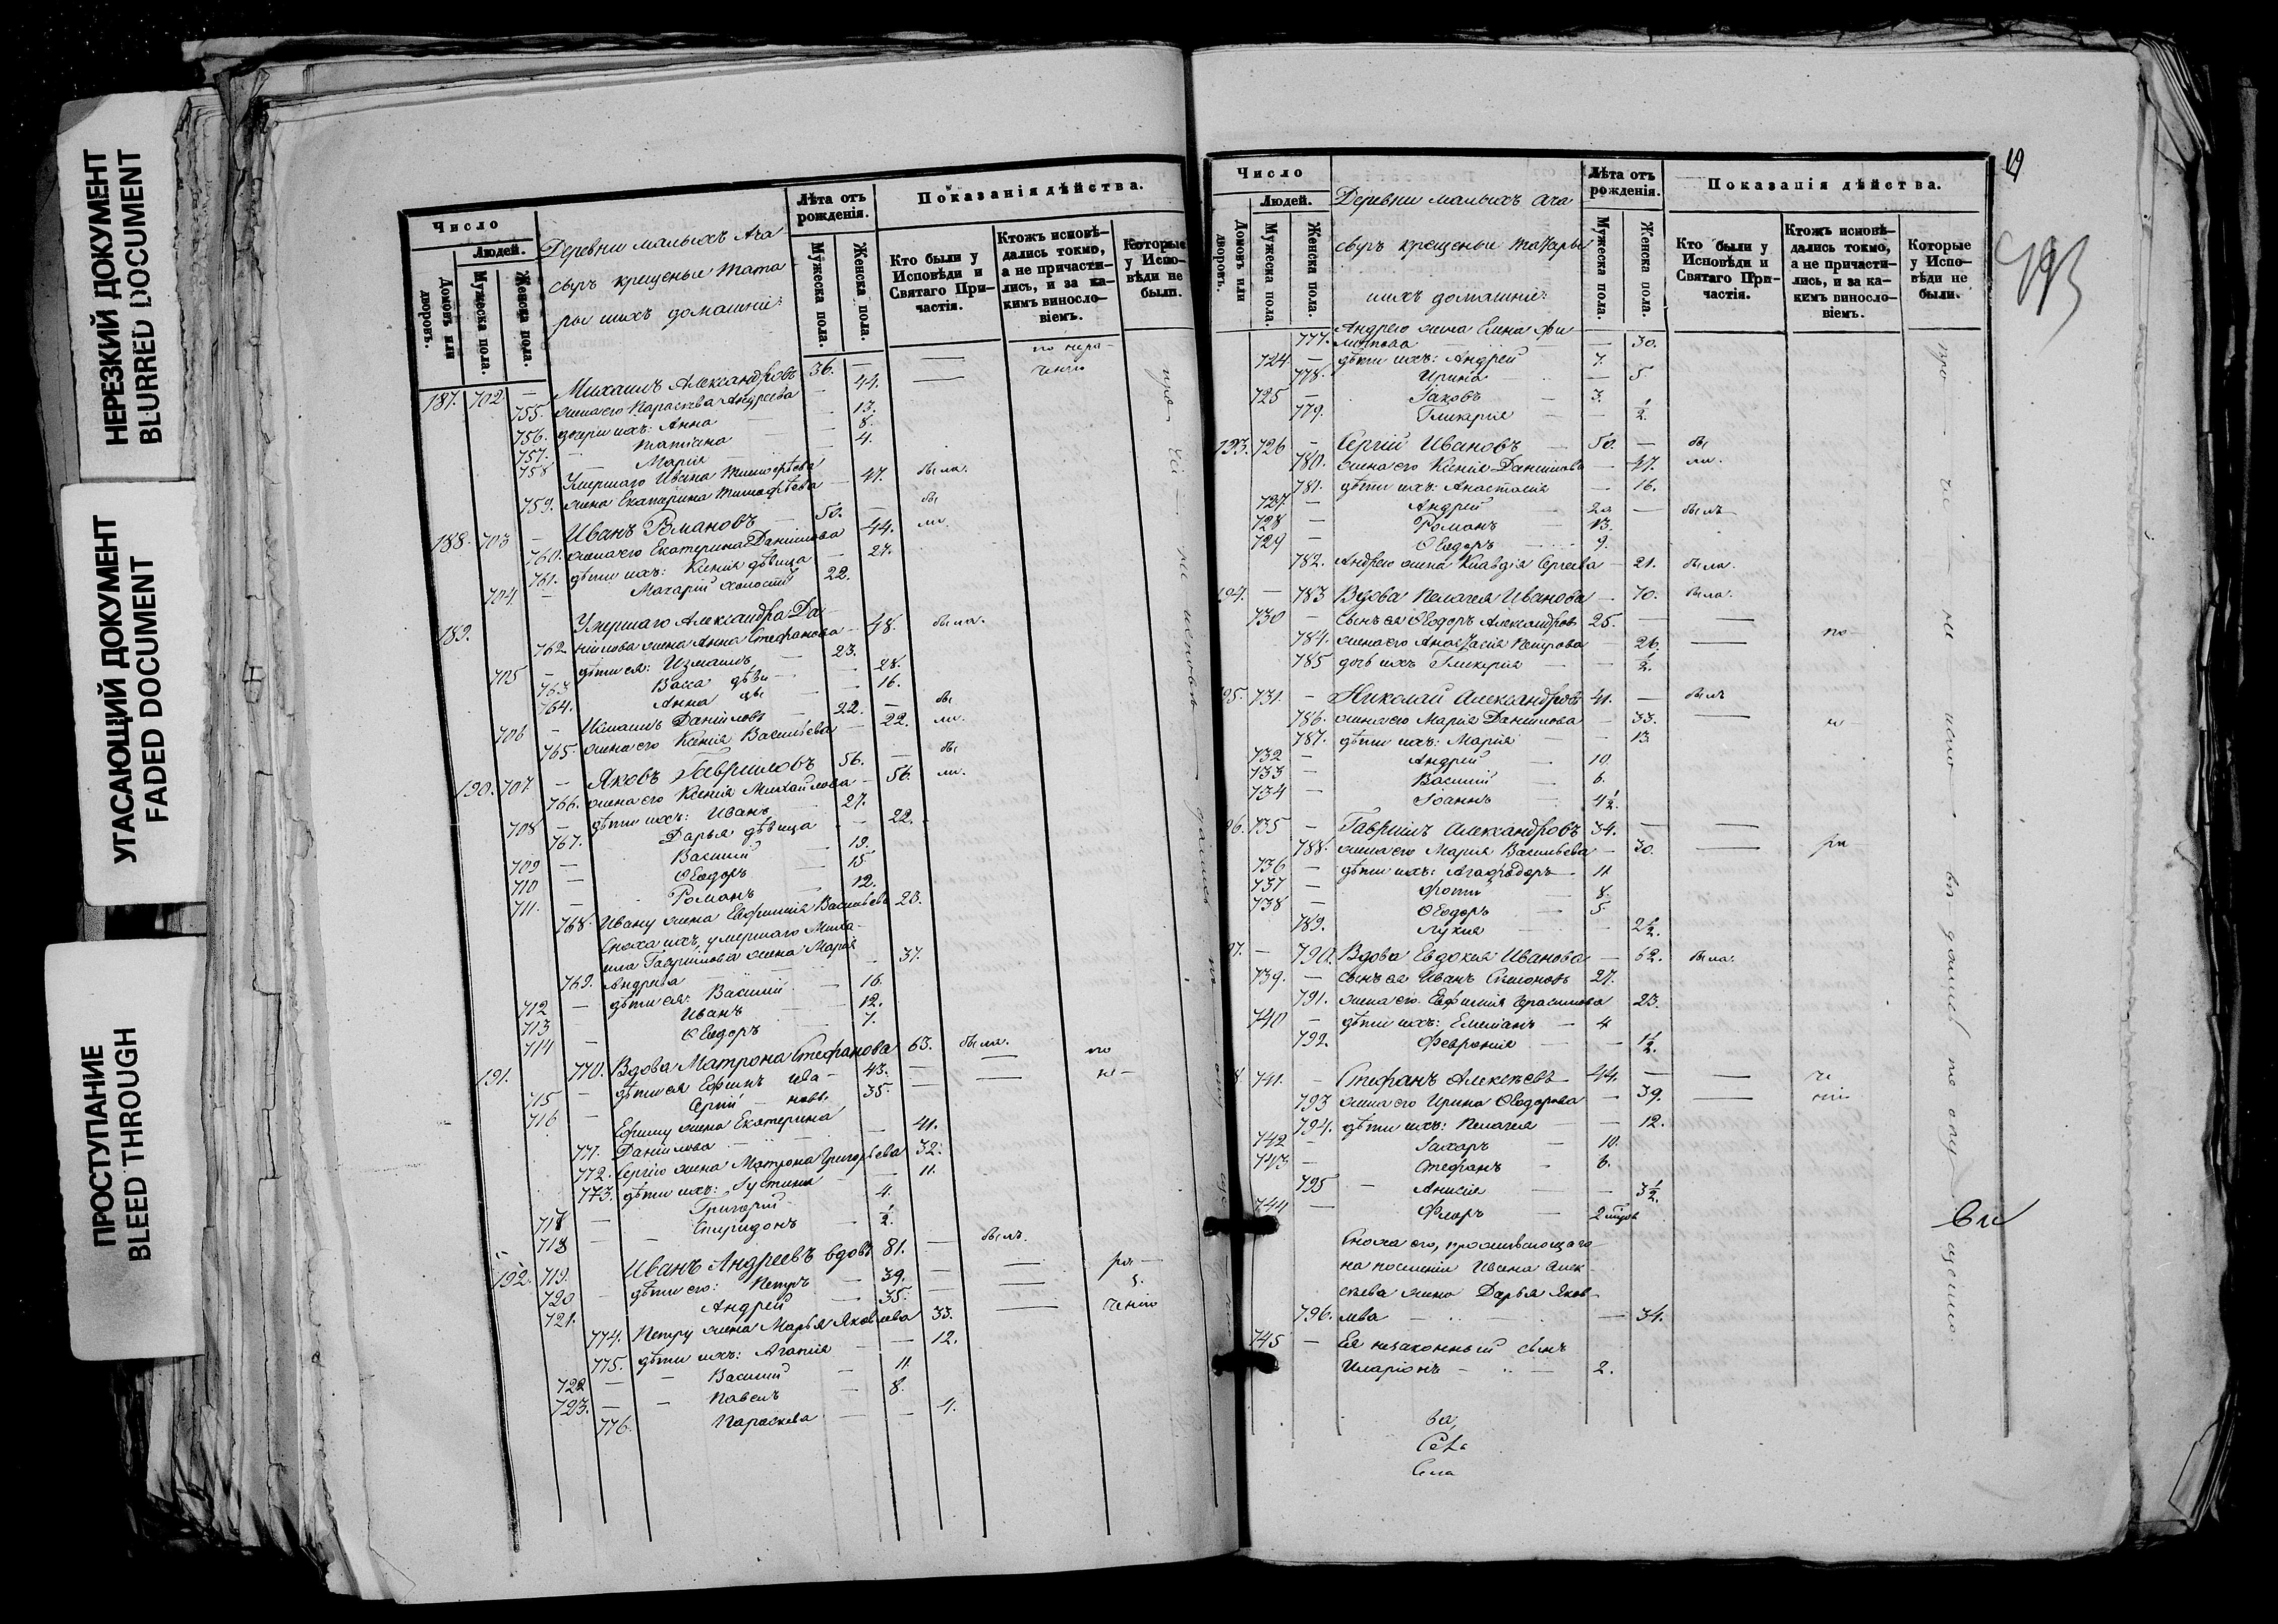 НЕРЕЗКИЙ ДОКУМЕНТ
BLURRED DOCUMENT
УГАСАЮЩИЙ ДОКУМЕНТ
FADED DOCUMENT
ПРОСТУПАНИЕ
BLEED THROUGH
Число
Людей.
Домовъ или дворовъ.
Мужеска пола.
Женска пола.
Деревни малыхъ Ача
сыръ крещеные тата
ры ихъ домашніе:
Лѣта отъ рожденія.
Мужеска пола.
Женска пола.
Показанія дѣйства.
Кто были у Исповѣди и Святаго Причастія.
Ктожъ исповѣдались токмо, а не причастились, и за какимъ винословіемъ.
Которые у Исповѣди не были.
187. 702 — Михаилъ Александровъ 36. — —
755. жена его Параскева Андреева — 44. —
756. дщери ихъ: Анна — 13.
757. — Татіана — 8.
758 — Марія — 4.
Умершаго Ивана Тимофѣева
759. жена Екатерина Тимофѣева — 47. была.
188. 703 — Иванъ Романовъ 50. — бы
760. жена его Екатерина Даніилова 44. ли.
761. дѣти ихъ: Ксенія дѣвица — 27.
704. — Макарій холостъ 22.
189. Умершаго Александра Да
762 ніилова жена Анна Стефанова — 48. была.
705 — дѣти ея: Измаилъ 23.
763 Васса дѣви — 28.
764. Анна — 16.
706 — Измаилъ Даніиловъ 22. — бы
765. жена его Ксенія Васильева — 22. ли.
190. 707. — Яковъ Гавриловъ 56. — бы
766. жена его Ксенія Михайлова — 56. ли.
708 — дѣти ихъ: Иванъ 27.
767. Дарья дѣвица — 22.
709 — Василій 19.
710 — Ѳеодоръ 15
711. — Романъ 12.
768. Ивану жена Евфимія Васильева 23.
Сноха ихъ, умершаго Миха-
ила Гаврилова жена Марія
769. Андреева — 37.
712 — дѣти ея: Василій — 16.
713 — Иванъ — 12.
714 — Ѳеодоръ — 7.
191. 770. Вдова Матрона Стефанова 63. была.
715 — дѣти ея Ефимъ Ива- 43. — —
716 — Сергій новы 35. — —
Ефиму жена Екатерина
771. Даніилова — 41.
772. Сергію жена Матрона Григорьева 32.
773. дѣти ихъ: Іустина — 11.
717 — Григорій — 4.
718 — Спиридонъ — ½.
192. 719. Иванъ Андреевъ вдовъ 81. — былъ.
720 — дѣти его: Петръ — 39. —
721. Андрей — 35. —
774. Петру жена Марья Яковлева 33.
775. дѣти ихъ: Агапія — 12.
722 — Василій — 11.
723. — Павелъ — 8.
776. Параскева — 4.
Число
Людей.
Домовъ или дворовъ.
Мужеска пола.
Женска пола.
Деревни малыхъ Ача
сыръ крещеные татары
ихъ домашніе:
Лѣта отъ рожденія.
Мужеска пола.
Женска пола.
Показанія дѣйства.
Кто были у Исповѣди и Святаго Причастія.
Ктожъ исповѣдались токмо, а не причастились, и за какимъ винословіемъ.
Которые у Исповѣди не были.
Андрею жена Елена Фи
777. липпова — 30.
724 — дѣти ихъ: Андрей 7.
778. Ирина — 5.
725 — Іаковъ — 3.
779. Гликерія — ½.
193. 726 — Сергій Ивановъ — 50. — бы
780. жена его Ксенія Даніилова — 47. ли.
781. дѣти ихъ: Анастасія — 16.
727. — Андрей — 20 — былъ
728 — Романъ — 13.
729 — Ѳеодоръ — 9.
782. Андрею жена Клавдія Сергеева — 21. была.
194. — 783 Вдова Пелагея Иванова — 70. была.
730 — сынъ ея Ѳеодоръ Александровъ 25. — —
784. жена его Анастасія Петрова — 26. —
785 дочь ихъ Гликерія — ½.
195. 731. — Николай Александровъ 41. — былъ
786. жена его Марія Даніилова — 33. —
787. дѣти ихъ: Марія — 13
732 — Андрей — 10.
733 — Василій — 6.
734 — Іоаннъ — 4½.
196. 735 — Гавріилъ Александровъ 34. — —
788. жена его Марія Васильева — 30. —
736 — дѣти ихъ: Агафодоръ — 11
737 — Фотій — 8.
738 — Ѳеодоръ — 5
789. Лукія — 2½.
97. — 790. Вдова Евдокея Иванова — 62. была.
739. — сынъ ея Иванъ Симоновъ 27.
791. жена его Евфимія Герасимова 23.
740 — дѣти ихъ: Емеліанъ — 4
792. Февронія — 1½.
8. 741. — Стефанъ Алексѣевъ — 44. — —
793 жена его Ирина Ѳеодорова — 39. —
794. дѣти ихъ: Пелагея — 12.
742 — Захаръ — 10.
743 — Стефанъ — 6.
795 — Анисія — 3½.
744 — Флоръ — 2
Сноха его, проживающаго
на поселеніи Ивана Алек-
сѣева жена Дарья Яков-
796. лева — 34.
745 — Ея незаконный сынъ
Иларіонъ — 2.